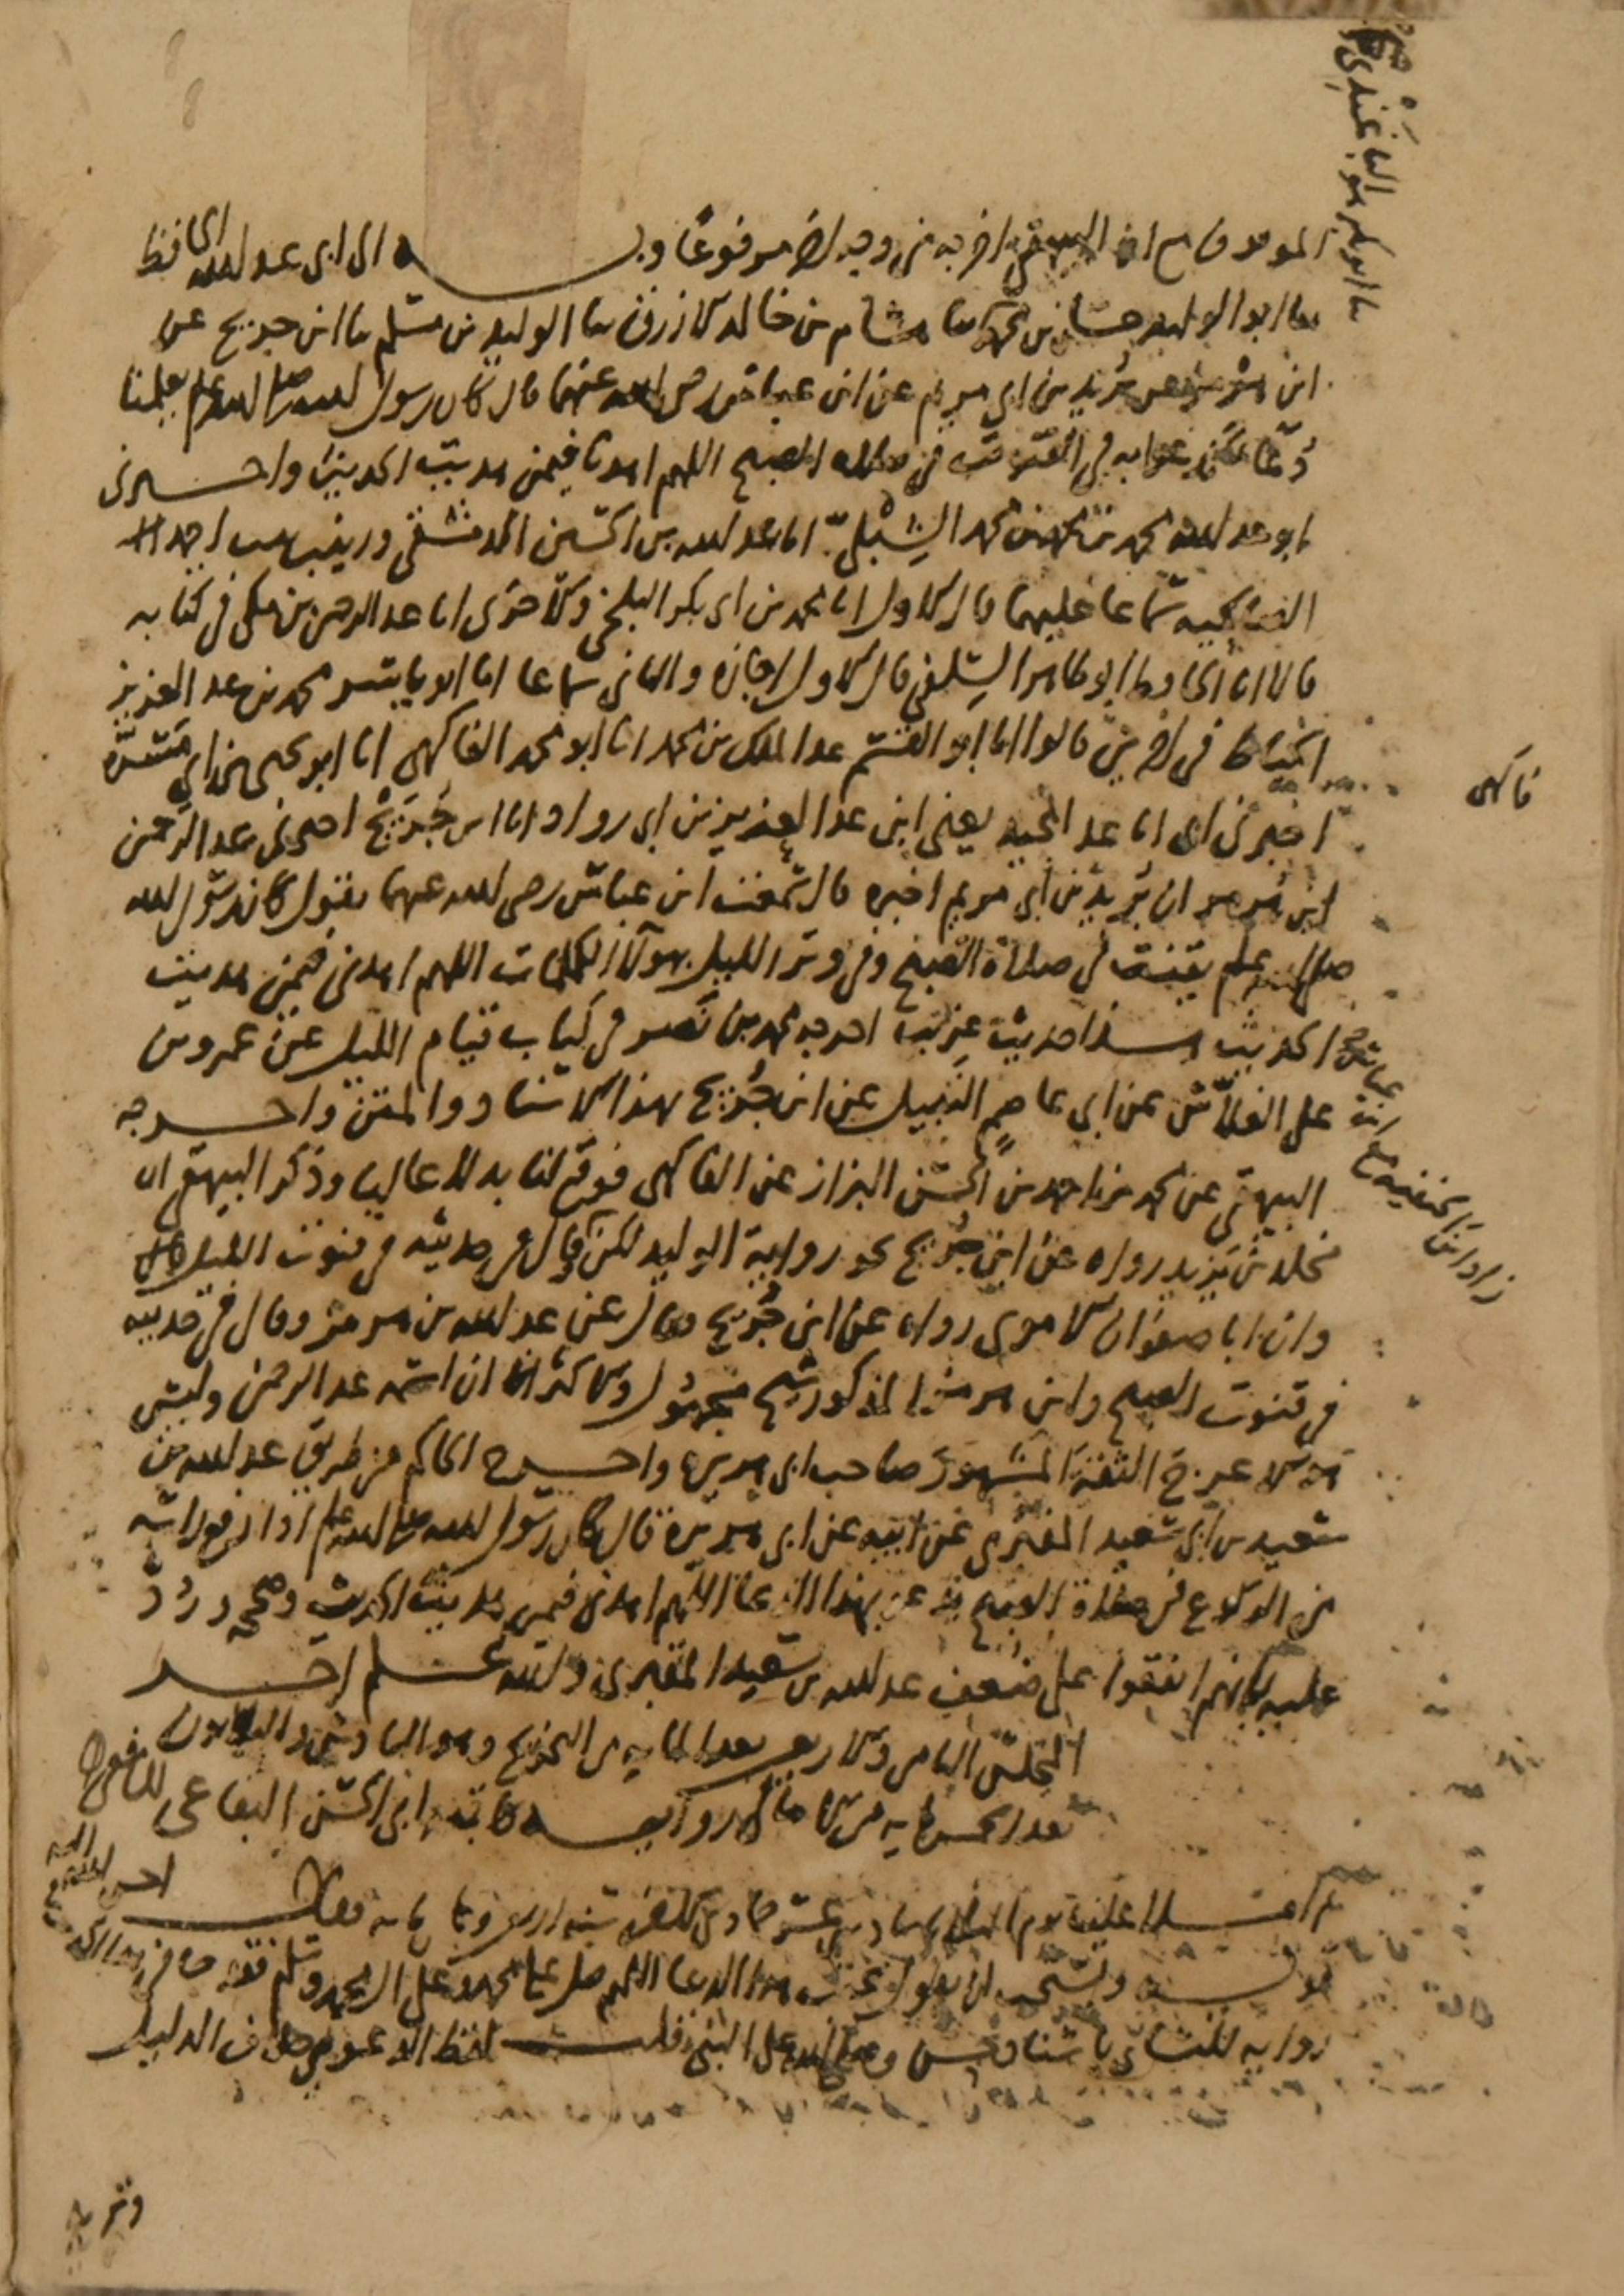 ان البيهقي اخرجه من وجه اخر مرفوعا وبه الى ابي عبد الله الحافظ
ثنا ابو الوليد حسان بن محمد ثنا هشام بن خالد الازرق ثنا الوليد بن مسلم ثنا ابن جريج عن
ابن هرمز عن بريد بن ابي مريم عن ابن عباس رضي الله عنهما قال كان رسول الله صلى الله عليه وسلم يعلمنا
دعا ندعوا به في القنوت من صلاه الصبح اللهم اهدنا فيمن هديت الحديث واخبرني
ابو عبد الله محمد بن محمد بن محمد الشبلي انا عبد الله بن الحسين الدمشقي وزينب بنت احمد
سماعا عليهما قال الاول انا محمد بن ابي بكر البلخي وقالت الاخرى انا عبد الرحمن بن مكي في كتابه
قالا انا الحافظ ابو طاهر السلفي قال الاول اجازه والثاني سماعا انا ابو ياسر محمد بن عبد العزيز
الخياط في اخرين قالوا انا ابو القسم عبد الملك بن محمد انا ابو محمد الفاكهي انا ابو يحيى بن ابي مسرة
اخبرني ابي انا عبد المجيد يعني ابن عبد العزيز بن ابي رواد انا ابن جريج اخبرني عبد الرحمن
ابن هرمز ان بريد بن ابي مريم اخبره قال سمعت ابن عباس رضي الله عنهما يقول كان رسول الله
صلى الله عليه وسلم يقنت في صلاة الصبح وفي وتر الليل بهولا الكلمات اللهم اهدني فيمن هديت
الحديث هذا حديث غريب اخرجه محمد بن نصر في كتاب قيام الليل عن عمرو بن
علي الفلاس عن ابي عاصم النبيل عن ابن جريج بهذا الاسناد والمتن واخرجه
البيهقي عن محمد بن احمد بن الحسن البزاز عن الفاكهي فوقع لنا بدلا عاليا وذكر البيهقي ان
مخلد بن يزيد رواه عن ابن جريج نحو رواية الوليد لكن قال في حديثه في قنوت الليل
وان ابا صفوان الاموي رواه عن ابن جريج وقال عن عبد الله بن هرمز وقال في حديثه
في قنوت الصبح وابن هرمز المذكور شيخ مجهول والاكثر ان اسمه عبد الرحمن وليس
هو الاعرج الثقة المشهور صاحب ابي هريرة واخرج الحاكم من طريق عبد الله بن
سعيد بن ابي سعيد المقبري عن ابيه عن ابي هريرة قال كان رسول الله صلى الله عليه وسلم اذا رفع راسه
من الركوع في صلاة الصبح يدعو بهذا الدعا اللهم اهدني فيمن هديت الحديث وصححه ورد
عليه بانهم اتفقوا على ضعف عبد الله بن سعيد المقبري والله اعلم اخر
المجلس الثامن والاربعين بعد الماية من التخريج وهو السادس والثمانون
بعد الخمسماية من الامالي رواية كاتبه ابي الحسن البقاعي الشافعي
ثم املا علينا يوم الثلاثا سادس عشر جمادى الاخرة سنة اربعين وثمان ماية فقال
قوله ويستحب ان يقول عقيب هذا الدعا اللهم صل على محمد وعلى ال محمد وسلم فقد جا في
رواية للنسائي باسناد حسن وصلى الله على النبي قلت لفظ الدعوى خلاف الدليل
فاكهي